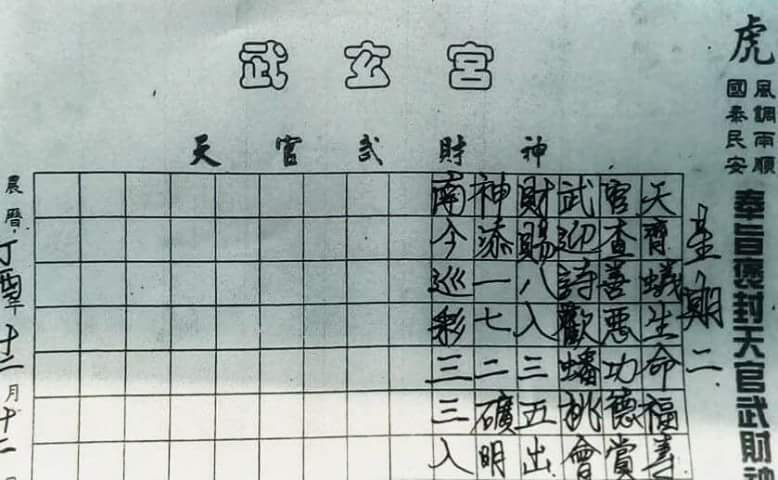 武玄宮
天官武財神
虎
風調雨順
國泰民安
奉旨褒封天官武財神
星期二
天齊蟻生命福壽
官查善惡功德賞
武迎詩歡蟠桃會
財賜八入三五出
神添一七二礦明
南今巡彩三三入
農曆丁酉年十二月十二